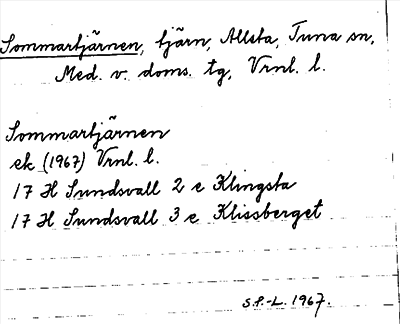 Sommartjärnen, tjärn, Allsta, Tuna sn,
Med. v. doms. tg, Vrnl. l.
Sommartjärnen
ek (1967) Vrnl. l.
17 H Sundsvall 2 e Klingsta
17 H Sundsvall 3 e Klissberget
S.P.-L. 1967.